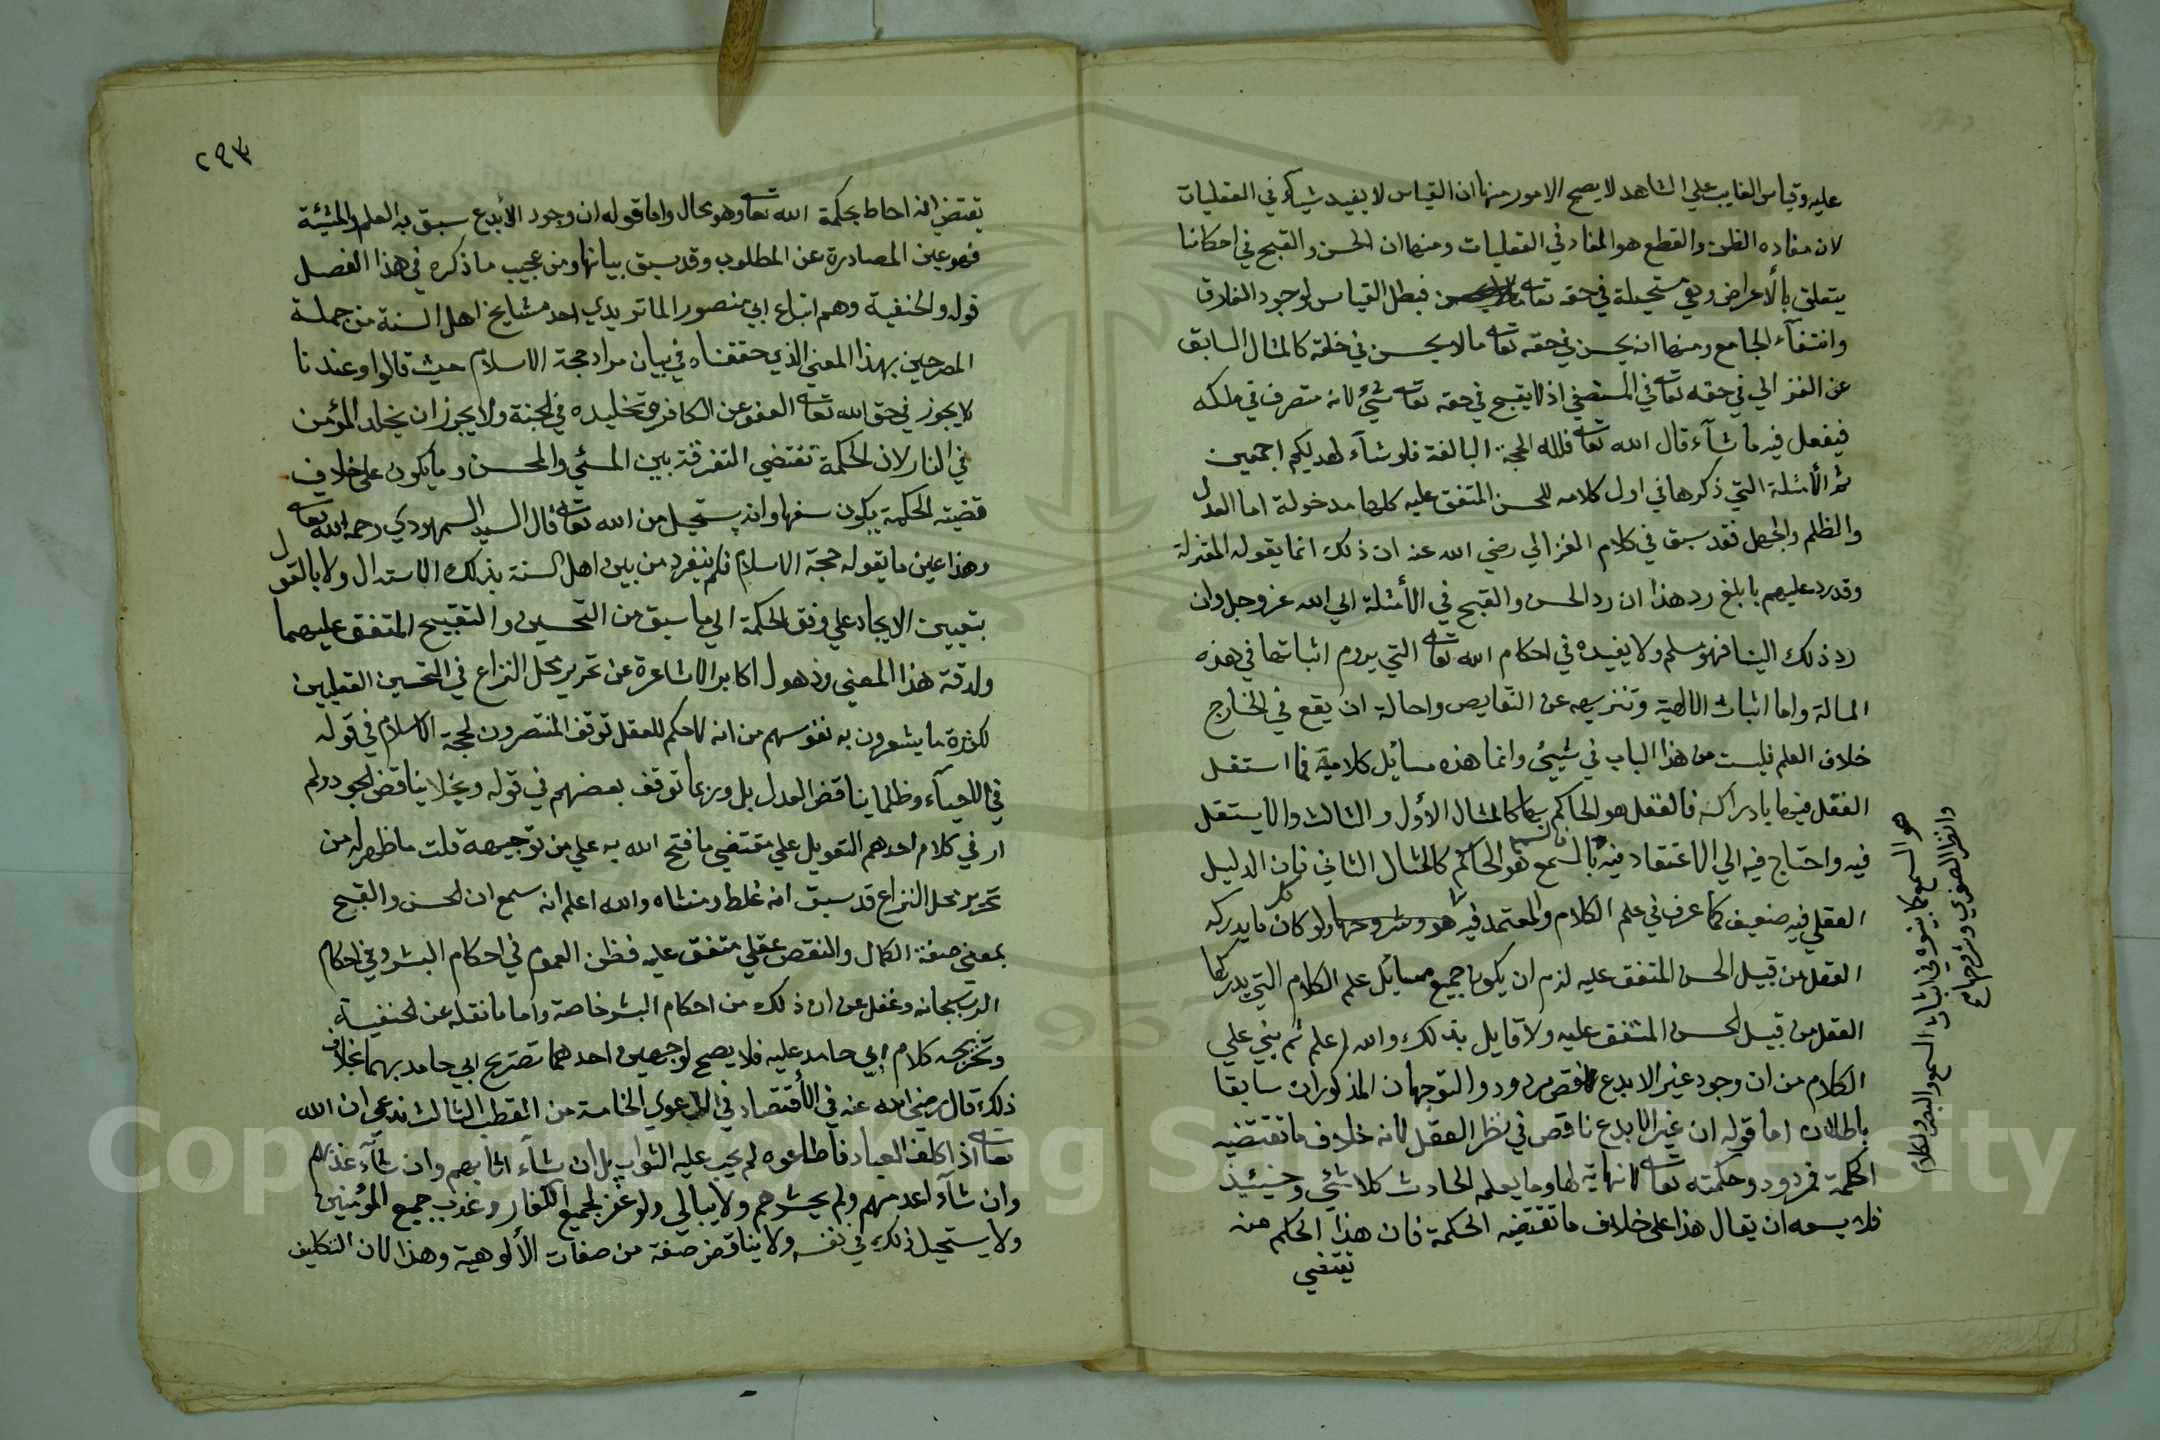 عليه وقياس الغايب علي الشاهد لا يصح لامور منها ان القياس لا يفيد شياء في العقليات
لان مفاده الظن والقطع هو المفاد في العقليات ومنها ان الحسن والقبح في احكامنا
يتعلق بالأعراض وهي مستحيلة في حقه تعالى فبطل القياس لوجود الفارق
وانتفآء الجامع ومنها انه يحسن في حقه تعالى ما لا يحسن في خلقه كالمثال السابق
عن الغزالي في حقه تعالى في المستصفي اذ لا يقبح في حقه تعالى شئ لانه متصرف في ملكه
فيفعل فيه ما شآء قال الله تعالى فلله الحجة البالغة فلو شآء لهديكم اجمعين
ثم الأمثلة التي ذكرها في اول كلامه للحسن المتفق عليه كلها مدخولة اما العدل
والظلم والجهل فقد سبق في كلام الغزالي رضي الله عنه ان ذلك انما يقوله المعتزلة
وقد رد عليهم بابلغ رد هذا ان رد الحسن والقبح في الأمثلة الي الله عز وجل وان
رد ذلك الينا فهو مسلم ولا يفيده في احكام الله تعالى التي يروم اثباتها في هذه
المسالة واما اثبات الالهية وتنزيهه عن النقايص واحالة ان يقع في الخارج
خلاف العلم فليست من هذا الباب في شييئ وانما هذه مسايل كلامية فما استقل
العقل فيها بادراكه فالعقل هو الحاكم بها كالمثال الأول والثالث والا يستقل
فيه واحتاج فيه الي الاعتقاد فيه بالسمع فالسمع هو الحاكم كالمثال الثاني فان الدليل
العقلي فيه ضعيف كما عرف في علم الكلام والمعتمد فيه هو وشروحها ولو كان كل ما يدركه
العقل من قبيل الحسن المتفق عليه لزم ان يكون جميع مسايل علم الكلام التي يدركها
العقل من قبيل الحسن المتفق عليه ولا قايل بذلك والله اعلم ثم بني علي
الكلام من ان وجود غير الابدع نقص مردود والتوجيهان المذكوران سابقا
باطلان اما قوله ان غير الابدع ناقص في نظر العقل لانه خلاف ما تقتضيه
الحكمة فمردود وحكمته تعالى لا نهاية لها وما يعلمه الحادث كلا شئي وحينئيذ
فلا يسعه ان يقال هذا على خلاف ما تقتضيه الحكمة فان هذا الحكم منه
يقتضي
هو السمع كما بينوه في اثبات السمع والبصر والكلام
وانظر الصغري وشروحها صح
٢٩٣
يقتضي انه احاط بحكمة الله تعالى وهو محال واما قوله ان وجود الأبدع سبق به العلم والمشيئة
فهو عين المصادرة عن المطلوب وقد سبق بيانها ومن عجيب ما ذكره في هذا الفصل
قوله والحنفية وهم اتباع ابي منصور الماتريدي احد مشايخ اهل السنة من جملة
المصرحين بهذا المعني الذي حققناه في بيان مراد حجة الاسلام حيث قالوا وعندنا
لا يجوز في حق الله تعالى العفو عن الكافر وتخليده في الجنة ولا يجوز ان يخلد المؤمن
في النار لان الحكمة تقتضي التفرقة بين المسئي والمحسن وما يكون على خلاف
قضيته الحكمة يكون سفها وانه يستحيل من الله تعالى قال السيد السمهودي رحمه الله تعالى
وهذا عين ما يقوله حجة الاسلام فلم ينفرد من بين اهل السنة بذلك الاستدال ولا بالقول
بتعيين الايجاد علي وفق الحكمة الي ما سبق من التحسين والتقبيح المتفق عليهما
ولدقة هذا المعني وذهول اكابر الاشاعرة عن تحرير محل النزاع في التحسين العقليين
لكثرة ما يشعرون به نفوسهم من انه لا حكم للعقل توقف المنتصرون لحجة الاسلام في قوله
في الاحيآء وظلما يناقض العدل بل وربما توقف بعضهم في قوله وبخلا يناقض الجود ولم
ار في كلام احدهم التعويل علي مقتضي ما فتح الله به علي من توجيهه قلت ما ظهر له من
تحرير محل النزاع قد سبق انه غلط ومنشاه والله اعلم انه سمع ان الحسن والقبح
بمعني صفة الكمال والنقص عقلي متفق عليه فظن العموم في احكام البشر وفي احكام
الرب سبحانه وغفل عن ان ذلك من احكام البشر خاصة واما ما نقله عن الحنفية
وتخريجه كلام ابي حامد عليه فلا يصح لوجهين احدهما تصريح ابي حامد بهما بخلاف
ذلك قال رضي الله عنه في الأقتصاد في الدعوي الخامسة من القطب الثالث ندعي ان الله
تعالى اذا كلف العباد فاطاعوه لم يجب عليه الثواب بل ان شآء اثابهم وان شآء عذبهم
وان شآء اعدمهم ولم يحشرهم ولا يبالي ولو غفر لجميع الكفار وعذب جميع المؤمنين
ولا يستحيل ذلك في نفسه ولا يناقض صفة من صفات الألوهية وهذا لان التكليف
Copyright © King Saud University
957